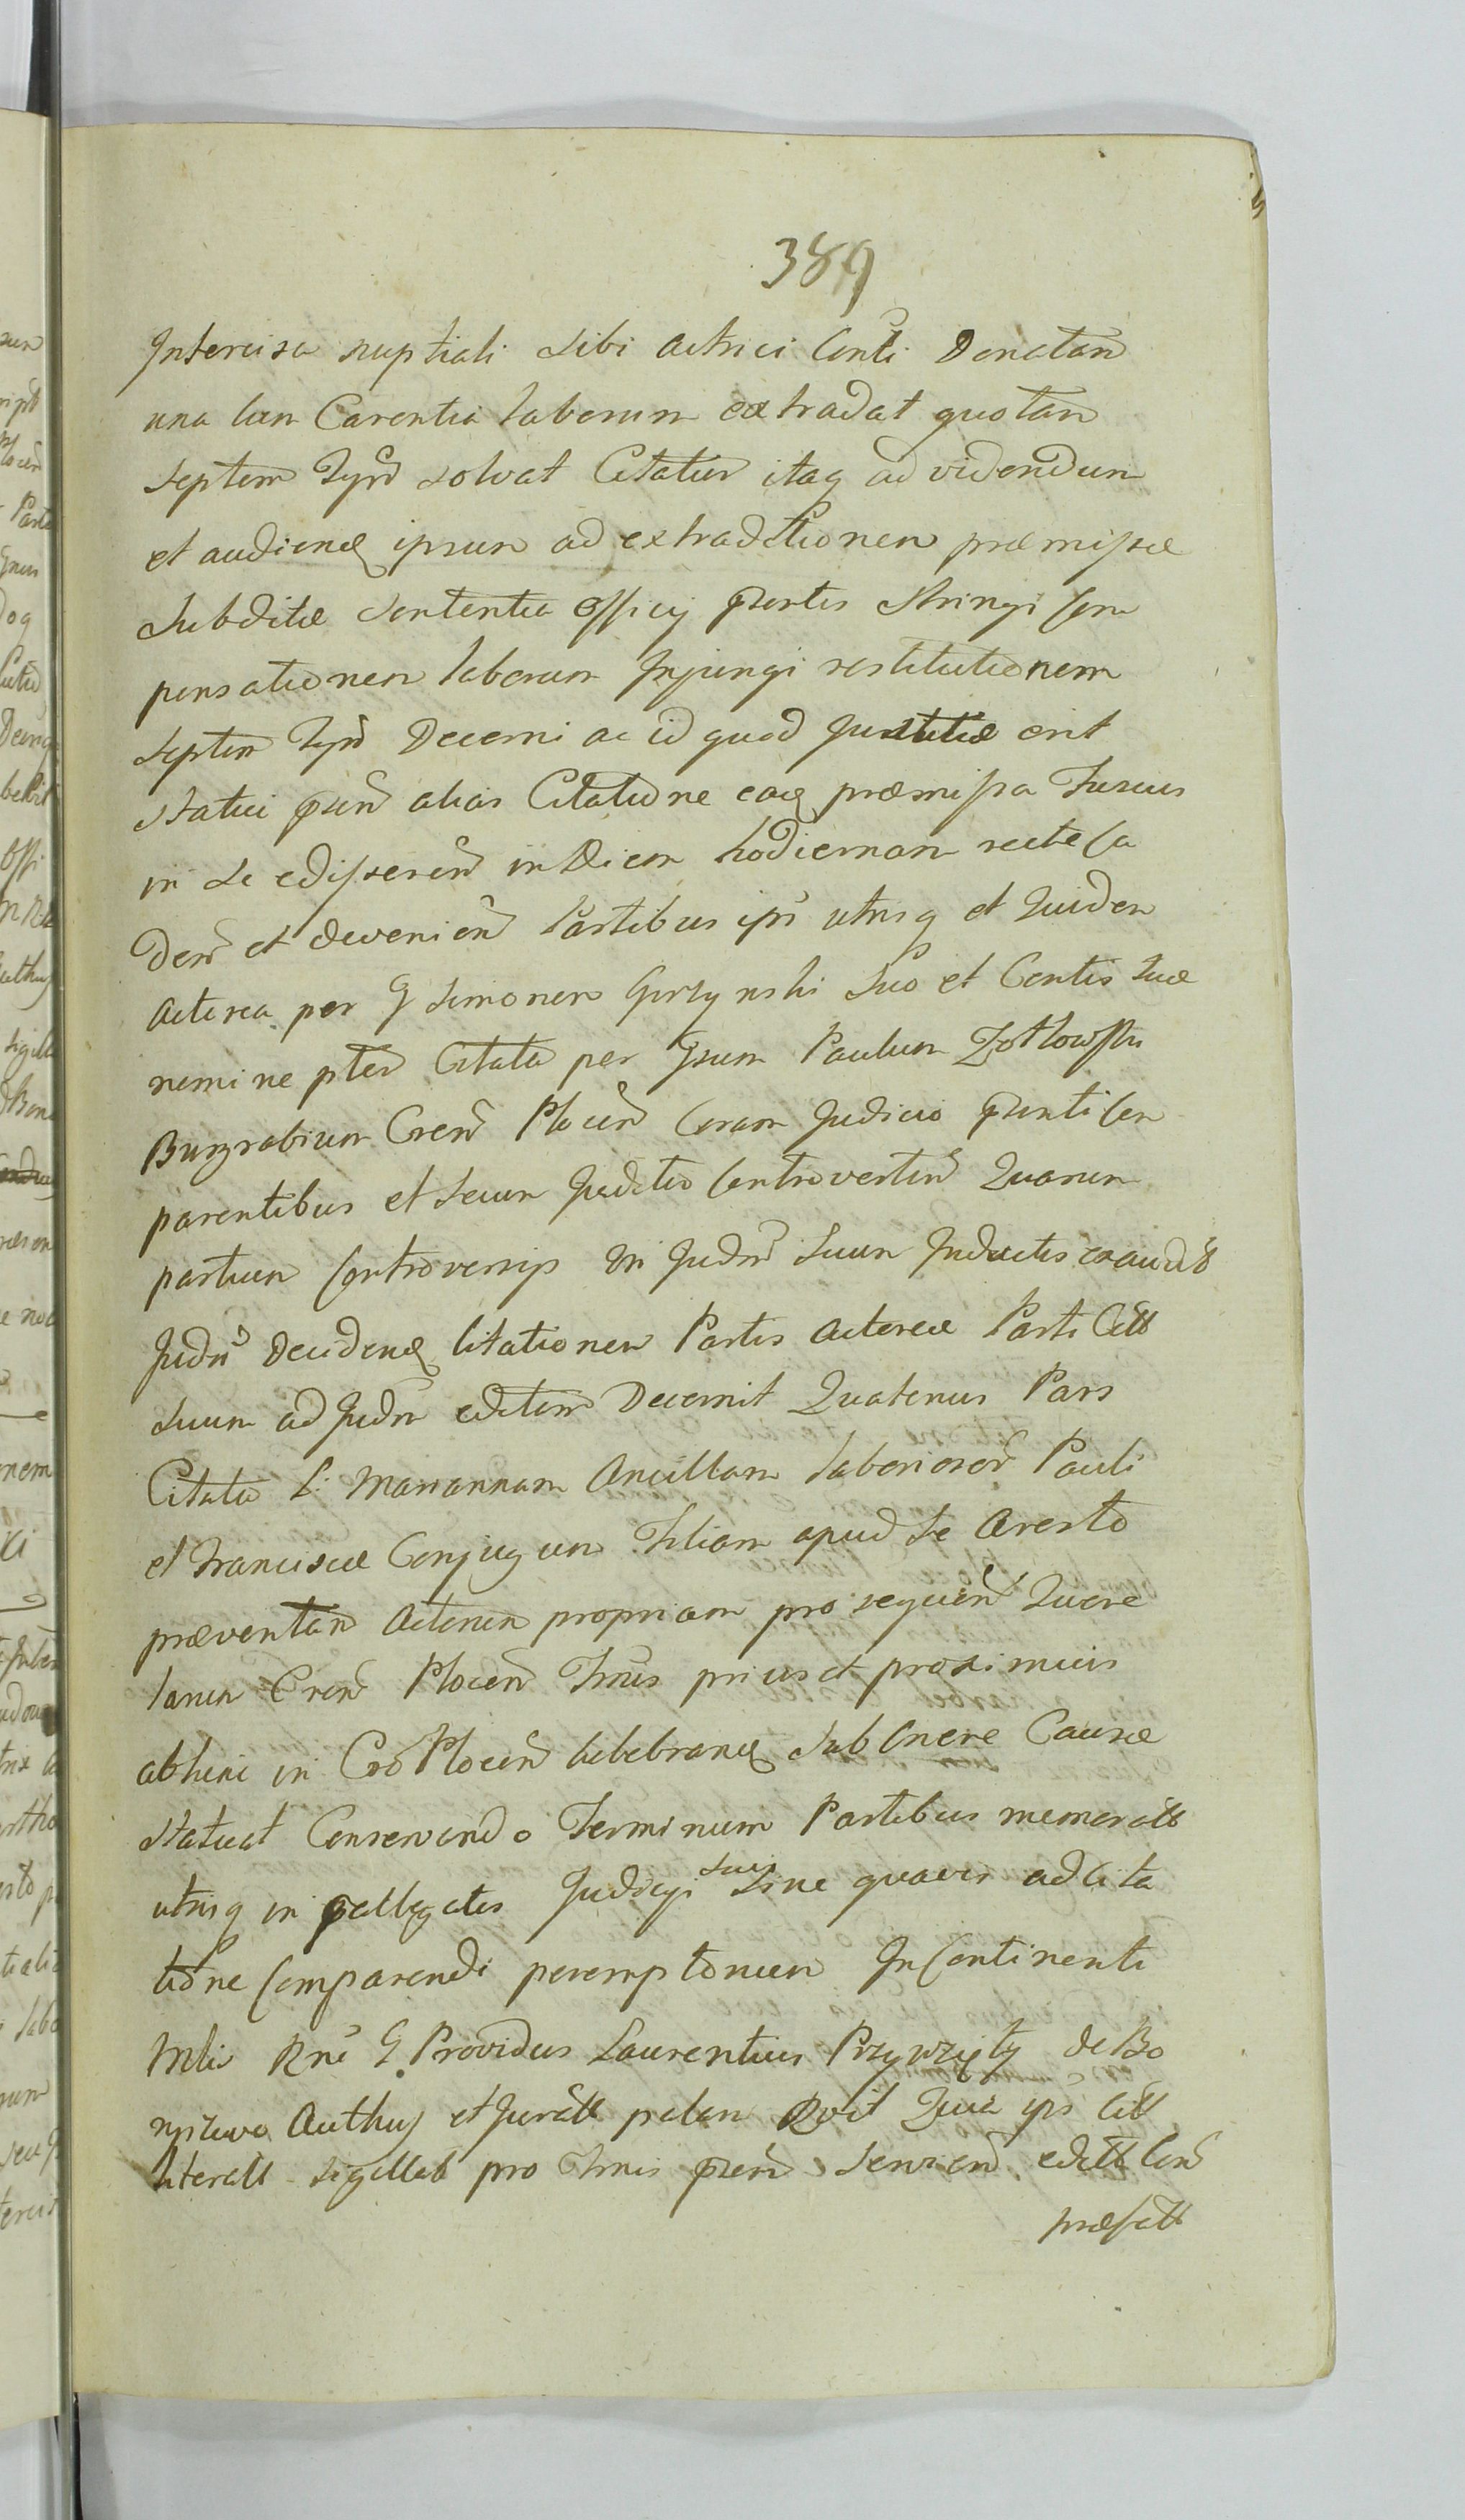 389
Intercisa nuptiali sibi actrici Conti Donatam
una cum Carentia laborum extradat quotam
septem Tyn̄ solvat Citatur itaq ad videndum
et audiend ipsum ad extraditionem præmissæ
Subditæ Sententia Officij pæsentis stringi Com
pensationem laborum Injungi restitutionem
septem Tyn̄ Decerni ac id quod Justitiæ erit
statui pæsen̄ alias Citatione eaq præmissa Fusius
in se edisseren̄ in Diem hodiernam recte Ca
den̄ et devenien̄ Partibus ips utrisq et quidem
Actorea per G Simonem Gorzynski suo et Contis suæ
nomine pter Citata per Gsum Paulum Zotkowski
Burgrabium Cren̄ Plocen̄ Coram Judicio pæsenti Com
parentibus et secum Juditio Controvertin̄ Quarum
partium Controversijs in Judm̄ suum Inductis exaudit
Judm̄ Decidend Citationem Partis Actoreæ Parti Citt
suum ad Judm̄ editam Decernit Quatenus Pars
Citata L: Mariannam Ancillam laboriosor̄ Pauli
et Franciscæ Conjugum Filiam apud se Aresto
præventam Actionem propriam pro sequen̄ Quere
larum Cren̄ Plocen̄ Tmis prius et proximius
abhinc in Cro Plocen̄ Celebrand sub onere Causæ
statuat Conservando Terminum Partibus memoratt
utrisq in pallegatis Judicij suis sine quavis adcita
tione Comparendi peremptorium In Continenti
Mlis Rne G Providus Laurentius Przywzięty de Bo
nyslawo Authus et Juratt palam Rvit Quia ips Citt
literatt sigillatt pro Tmis pæsen̄ servien̄ editt Con̄
præfatt